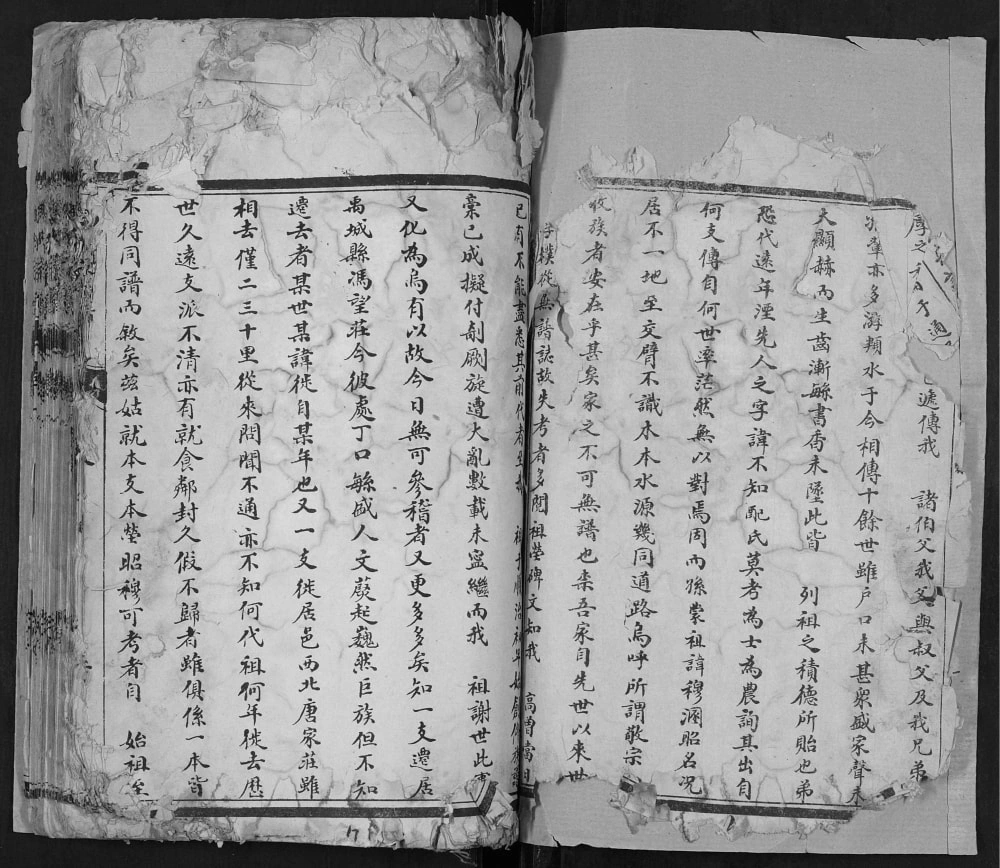 厚之
通
遞傳我 諸伯父我父與叔父及我兄弟
輩亦多游頖水于今相傳十餘世雖戶口未甚衆盛家聲未
大顯赫而生齒漸緐書香未墜此皆 列祖之積德所貽也弟
恐代遠年湮先人之字諱不知配氏莫考為士為農詢其出自
何支傳自何世率茫然無以對焉因而孫蒙祖諱穆溷昭名况
居不一地至交臂不識木本水源幾同道路烏呼所謂敬宗
收族者安在乎甚矣家之不可無譜也柰吾家自先世以來世
守樸從無譜誌故失考者多閱祖塋碑文知我
已有不能盡悉其前代者 祖于順治
稾已成擬付剞劂旋遭大亂數載未寧繼而我 祖謝世此
又化為烏有以故今日無可參稽者又更多多矣知一支遷居
禹城縣馮望莊今彼處丁口緐盛人文蔚起巍然巨族但不知
遷去者某世某諱徙自某年也又一支徙居邑西北唐家莊雖
相去僅二三十里從來問聞不通亦不知何代祖何年徙去歷
世久遠支派不清亦有就食鄰封久假不歸者雖俱係一本皆
不得同譜而敘矣茲姑就本支本塋昭穆可考者自 始祖至